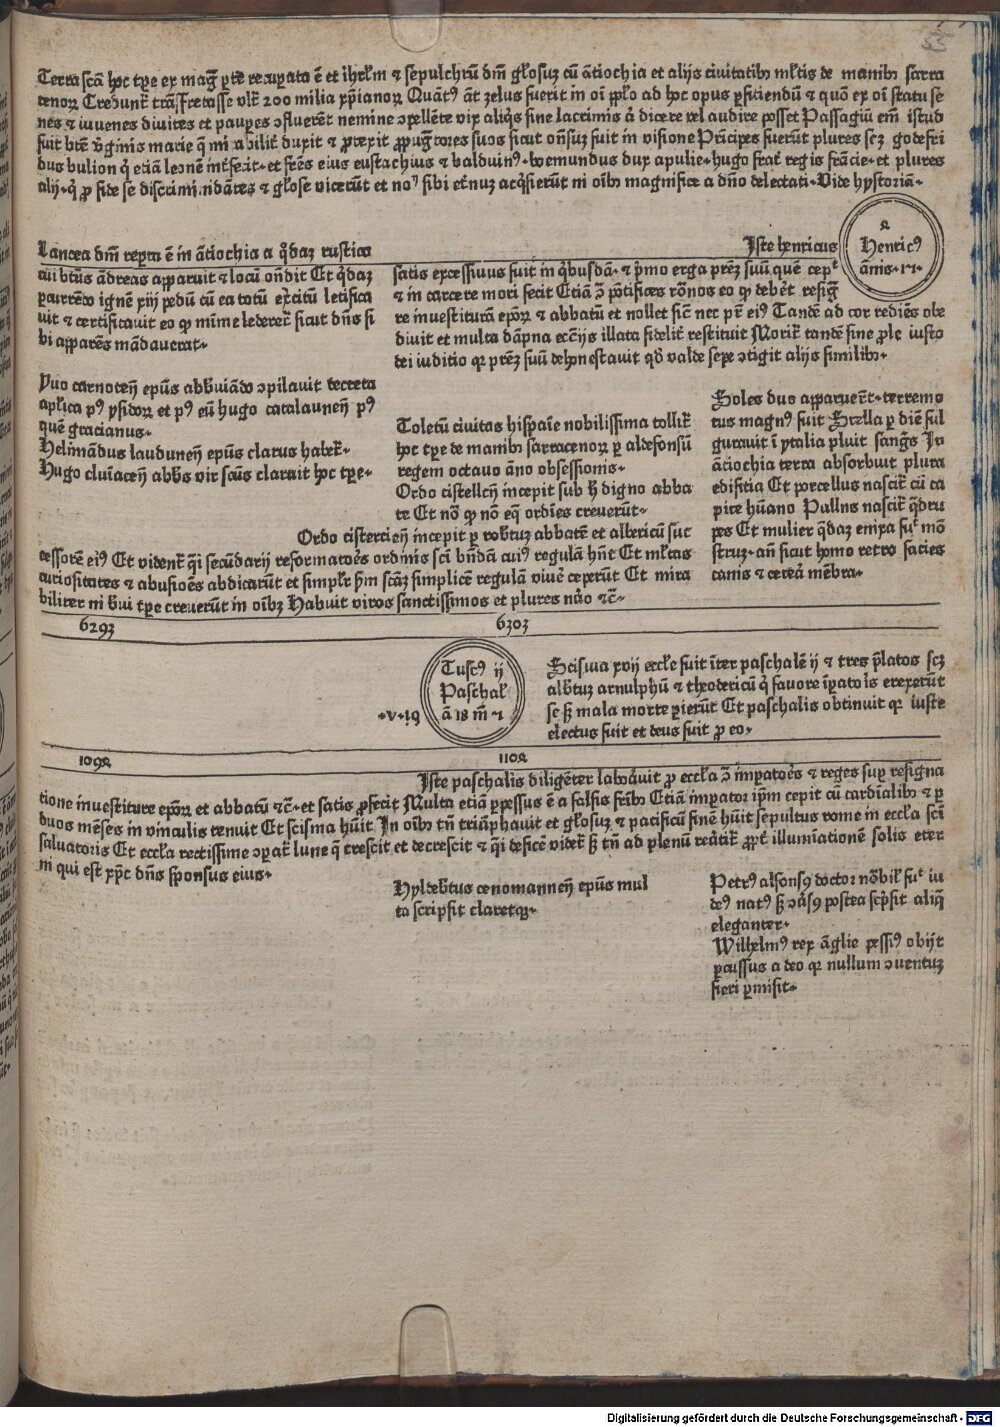 55
Terra scā hoc tꝑe ex mag̅ ꝑte recuꝑata ē et ihrl̅m ⁊ sepulchrū dn̄i gl̅osuʒ cū ātiochia et alijs ciuitatibꝫ ml̅tis de manibꝫ sarra
cenoꝝ Credunt᷑ trāsfretasse vlt᷑ 200 milia xp̄ianoꝝ Quātꝰ āt zelus fuerit in oī pp̄lo ad hoc opus ꝑficiendū ⁊ quō ex oī statu se
nes ⁊ iuuenes diuites et pauꝑes ɔfluerēt nemine ɔpellēte vix aliq̄s sine lacrimis ā dicere vel audire posset Passagiū em̄ istud
fuit btē v̄ginis marie q̄ mirabilit᷑ duxit ⁊ ꝓtexit ꝓpug̅tores suos sicut on̄suʒ fuit in visione Prīcipes fuerūt plures scʒ godefri
dus bulion q̄ etiā leonē int̄fecit· et fr̄es eius eustachius ⁊ balduinꝰ· boemundus dux apulie· hugo frat᷑ regis frācie· et plures
alij· q̄ ꝓ fide se discrimini dātes ⁊ gl̅ose vicerūt et noꝰ sibi et̄nuʒ acq̄sierūt ni oībꝫ magnifice a dn̄o delectati· Vide hystoriā·
Lancea dn̄i reꝑta ē in ātiochia a q̄daʒ rustico
cui btūs ādreas apparuit ⁊ locū on̄dit Et q̄daʒ
ꝑcurrēdo ignē xiij pedū cū ea totū ex̄citū letifica
uit ⁊ certificauit eo ꝙ mīme lederet᷑ sicut dn̄s si
bi apparēs mādauerat·
Iste henricus
ꝶ
Henricꝰ
ānis·
satis excessiuus fuit in q̄busdā· ⁊ p̄mo erga pr̄eʒ suū quē cep᷑
⁊ in carcere mori fecit Etiā ɔ̄ pōtifices rōnos eo ꝙ deb̄et resig̅
re inuestiturā ep̄oꝝ ⁊ abbatū et nollet sic̄ nec pr̄ eiꝰ Tandē ad cor rediēs obe
diuit et multa dāpna ecc̄ijs illata fidelit᷑ restituit Morit᷑ tandē sine ꝓle iusto
dei iuditio qꝛ pr̄eʒ suū dehonestauit qd̄ valde sepe ɔtigit alijs similibꝫ·
Yuo carnoteñ ep̄us abbuiādo ɔpilauit decreta
ap̄lica pꝰ ysidoꝝ et pꝰ eū hugo catalauneñ pꝰ
quē gracianus·
Helimādus lauduneñ ep̄us clarus habet᷑·
Hugo cluiaceñ abb̄s vir scūs claruit hoc tꝑe·
Toletū ciuitas hispaīe nobilissima tollit᷑
hoc tꝑe de manibꝫ sarracenoꝝ ꝑ aldefonsū
regem octauo āno obsessionis·
Ordo cistellen̄ incepit sub h̄ digno abba
te Et nō ꝙ nō eq̄ ordīes creuerūt·
Soles duo apparuer̄t· terremo
tus magnꝰ fuit Stella ꝑ diē ful
gurauit ī ytalia pluit sang̅s In
ātiochia terra absorbuit plura
edifitia Et porcellus nascit᷑ cū ca
pite hūano Pullus nascit᷑ q̄dru
pes Et mulier q̄daʒ enixa fu᷑ mō
struʒ· an̄ sicut homo retro facies
canis ⁊ cetēa mēbra·
Ordo cistercieñ incepit ꝑ rob̄tuʒ abbatē et albericū suc
cessorē eiꝰ Et vident᷑ q̄i secūdarij reformatōes ordinis sci bn̄dcā cuiꝰ regulā hn̄t Et ml̅tas
curiositates ⁊ abusioēs abdicarūt et simpl᷑r h̄m scāʒ simplicē regulā viue᷑ ceperūt Et mira
bilirer ni b̄ui tꝑe creuerūt in oībʒ Habuit viros sanctissimos et plures nūo ⁊c̄·
6293
6303
Tuscꝰ ij
Paschal᷑
ā 18 m̄
·v·19
Scisma xvij eccl̅e fuit īter paschalē ij ⁊ tres p̄latos scʒ
alb̄tuʒ arnulphū ⁊ theodericū q̄ fauore īꝑatoīs erexerūt
se sꝫ mala morte ꝑierūt Et paschalis obtinuit qꝛ iuste
electus fuit et deus fuit ꝓ eo·
1092
1102
Iste paschalis diligēter laborauit ꝓ eccl̅a ɔ̄ imꝑatoēs ⁊ reges suꝑ resigna
tione inuestiture ep̄oꝝ et abbatū ⁊c̄· et satis ꝓfecit Multa etiā ꝑpessus ē a falsis fr̄ibꝫ Etiā imꝑator ip̄m cepit cū cardīalibꝫ ⁊ ꝑ
duos mēses in vinculis tenuit Et scisma hūit In oībꝫ tn̄ triūphauit et gl̅osuʒ ⁊ pacificū finē hūit sepultus rome in eccl̅a sc̄i
saluatoris Et eccl̅a rectissime ɔꝑat᷑ lune q̄ crescit et decrescit ⁊ q̄i deficē videt᷑ sꝫ tn̄ ad plenū reūtit᷑ ꝓpt᷑ illumīationē solis eter
ni qui est xp̄c dn̄s sponsus eius·
Hyldeb̄tus cenomanneñ ep̄us mul
ta scripsit claretqꝫ·
Petrꝰ alfonsꝰ doctor nōbil᷑ fu᷑ iu
deꝰ natꝰ sꝫ ɔūsꝰ postea sc̄psit aliq̄
eleganter·
Wilhelmꝰ rex āglie pessīꝰ obijt
ꝑcussus a deo qꝛ nullum ɔuentuʒ
fieri ꝑmisit·
Digitalisierung gefördert durch die Deutsche Forschungsgemeinschaft - DFG